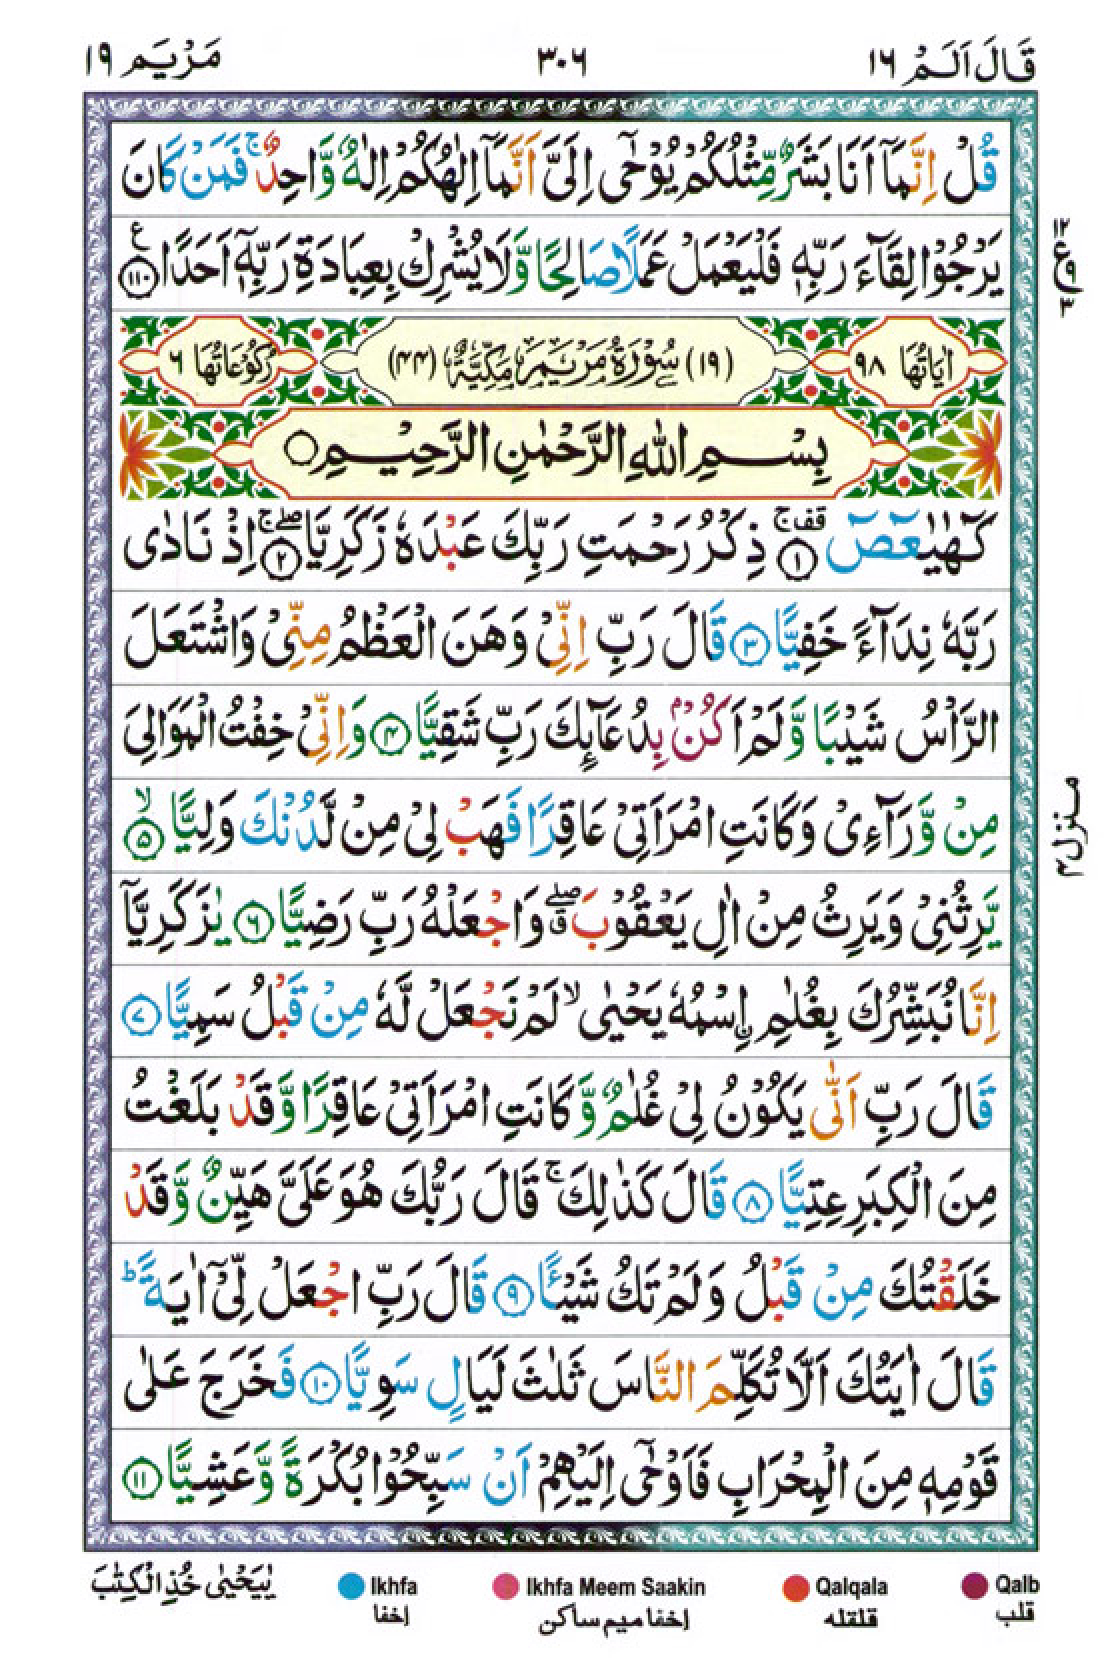 قَالَ اَلَمْ ١٦
٣٠٦
مَرْيَم ١٩
قُلْ اِنَّمَآ اَنَا بَشَرٌ مِّثْلُكُمْ يُوْحٰٓى اِلَىَّ اَنَّمَآ اِلٰهُكُمْ اِلٰهٌ وَّاحِدٌ ۚ فَمَنْ كَانَ
يَرْجُوْا لِقَآءَ رَبِّهٖ فَلْيَعْمَلْ عَمَلًا صَالِحًا وَّلَا يُشْرِكْ بِعِبَادَةِ رَبِّهٖٓ اَحَدًا ﴿١١٠﴾ ع
١٢
ع ٩
٣
اٰيَاتُهَا ٩٨
(١٩) سُوْرَةُ مَرْيَمَ مَكِّيَّةٌ (٤٤)
رُكُوْعَاتُهَا ٦
بِسْمِ اللّٰهِ الرَّحْمٰنِ الرَّحِيْمِ ۝
كٓهٰيٰعٓصٓ ﴿١﴾ قف ج ذِكْرُ رَحْمَتِ رَبِّكَ عَبْدَهٗ زَكَرِيَّا ﴿٢﴾ صلے ج اِذْ نَادٰى
رَبَّهٗ نِدَآءً خَفِيًّا ﴿٣﴾ قَالَ رَبِّ اِنِّىْ وَهَنَ الْعَظْمُ مِنِّىْ وَاشْتَعَلَ
الرَّاْسُ شَيْبًا وَّلَمْ اَكُنْۢ بِدُعَآئِكَ رَبِّ شَقِيًّا ﴿٤﴾ وَاِنِّىْ خِفْتُ الْمَوَالِىَ
مِنْ وَّرَآءِىْ وَكَانَتِ امْرَاَتِىْ عَاقِرًا فَهَبْ لِىْ مِنْ لَّدُنْكَ وَلِيًّا ﴿٥﴾ ۙ
يَّرِثُنِىْ وَيَرِثُ مِنْ اٰلِ يَعْقُوْبَ ق صلے وَاجْعَلْهُ رَبِّ رَضِيًّا ﴿٦﴾ يٰزَكَرِيَّآ
اِنَّا نُبَشِّرُكَ بِغُلٰمِ اۨسْمُهٗ يَحْيٰى ۙ لَمْ نَجْعَلْ لَّهٗ مِنْ قَبْلُ سَمِيًّا ﴿٧﴾
قَالَ رَبِّ اَنّٰى يَكُوْنُ لِىْ غُلٰمٌ وَّكَانَتِ امْرَاَتِىْ عَاقِرًا وَّقَدْ بَلَغْتُ
مِنَ الْكِبَرِ عِتِيًّا ﴿٨﴾ قَالَ كَذٰلِكَ ۚ قَالَ رَبُّكَ هُوَ عَلَىَّ هَيِّنٌ وَّقَدْ
خَلَقْتُكَ مِنْ قَبْلُ وَلَمْ تَكُ شَيْـًٔا ﴿٩﴾ قَالَ رَبِّ اجْعَلْ لِّىْٓ اٰيَةً ؕ
قَالَ اٰيَتُكَ اَلَّا تُكَلِّمَ النَّاسَ ثَلٰثَ لَيَالٍ سَوِيًّا ﴿١٠﴾ فَخَرَجَ عَلٰى
قَوْمِهٖ مِنَ الْمِحْرَابِ فَاَوْحٰٓى اِلَيْهِمْ اَنْ سَبِّحُوْا بُكْرَةً وَّعَشِيًّا ﴿١١﴾
منزل ٤
يٰيَحْيٰى خُذِ الْكِتٰبَ
Ikhfa
إخفا
Ikhfa Meem Saakin
إخفا ميم ساكن
Qalqala
قلقله
Qalb
قلب